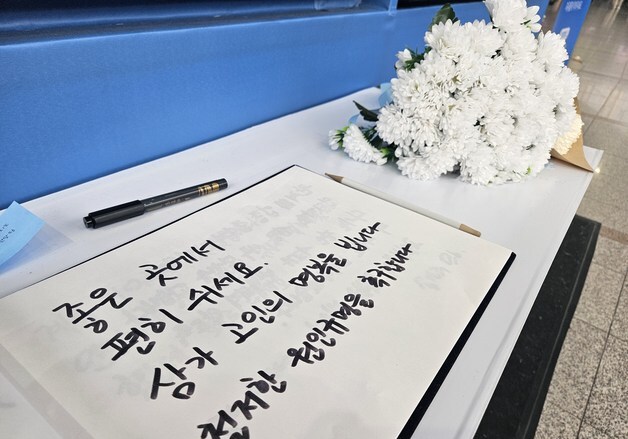 좋은 곳에서
편히 쉬세요.
삼가 고인의 명복을 빕니다
철저한 원인규명을 촉구합니다